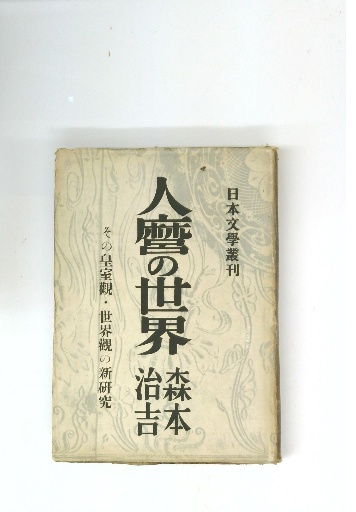 日本文學叢刊
人麿の世界
森本
治吉
その皇室觀・世界觀の新研究